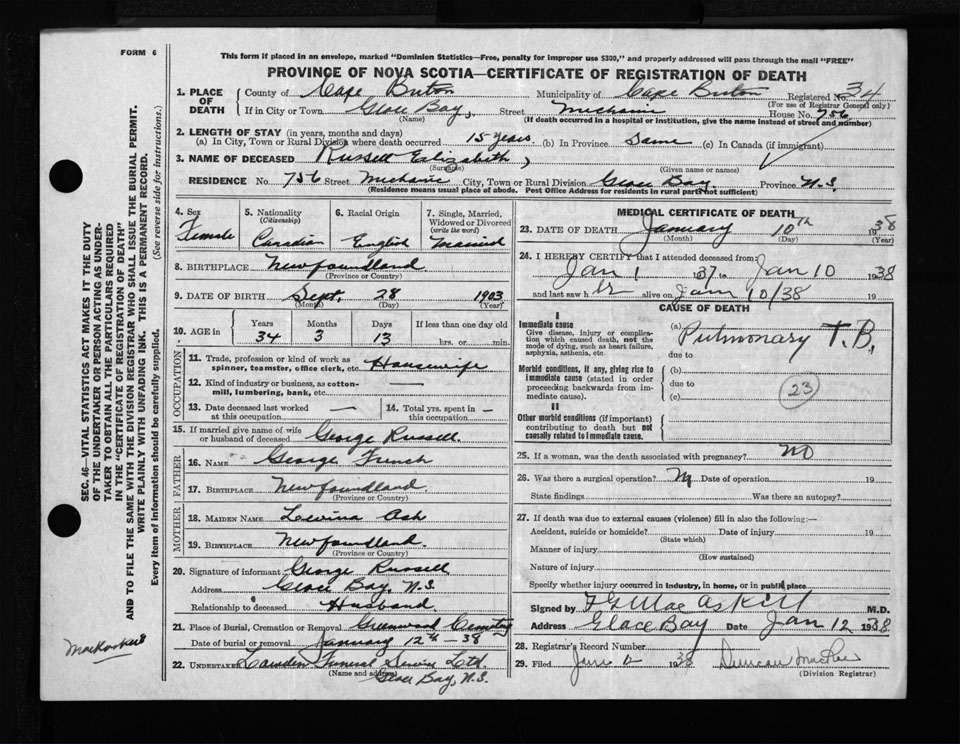 FORM 6
This form if placed in an envelope, marked "Dominion Statistics—Free, penalty for improper use $300," and properly addressed will pass through the mail "FREE"
PROVINCE OF NOVA SCOTIA—CERTIFICATE OF REGISTRATION OF DEATH
1. PLACE OF DEATH
County of Cape Breton Municipality of Cape Breton Registered No. 34
(For use of Registrar General only)
If in City or Town Glace Bay, Street Mechanic House No. 756
(Name) (If death occurred in a hospital or institution, give the name instead of street and number)
2. LENGTH OF STAY (in years, months and days)
(a) In City, Town or Rural Division where death occurred 15 years (b) In Province Same (c) In Canada (if immigrant)
3. NAME OF DECEASED Russell Elizabeth,
(Surname) (Given name or names)
RESIDENCE No. 756 Street Mechanic City, Town or Rural Division Glace Bay Province N.S.
(Residence means usual place of abode. Post Office Address for residents in rural parts not sufficient)
4. Sex Female
5. Nationality (Citizenship) Canadian
6. Racial Origin English
7. Single, Married, Widowed or Divorced (write the word) Married
8. BIRTHPLACE Newfoundland
(Province or Country)
9. DATE OF BIRTH Sept. 28 1903
(Month) (Day) (Year)
10. AGE in Years 34 Months 3 Days 13 If less than one day old hrs. or min.
OCCUPATION
11. Trade, profession or kind of work as spinner, teamster, office clerk, etc. Housewife
12. Kind of industry or business, as cotton-mill, lumbering, bank, etc. —
13. Date deceased last worked at this occupation —
14. Total yrs. spent in this occupation —
15. If married give name of wife or husband of deceased George Russell.
FATHER
16. NAME George French
17. BIRTHPLACE Newfoundland.
(Province or Country)
MOTHER
18. MAIDEN NAME Lewina Ash
19. BIRTHPLACE Newfoundland.
(Province or Country)
20. Signature of informant George Russell
Address Glace Bay, N.S.
Relationship to deceased Husband.
21. Place of Burial, Cremation or Removal Greenwood Cemetery
Date of burial or removal January 12th 38
22. UNDERTAKER Funeral Service Ltd.
(Name and address) Glace Bay, N.S.
MEDICAL CERTIFICATE OF DEATH
23. DATE OF DEATH January 10th 1938
(Month) (Day) (Year)
24. I HEREBY CERTIFY that I attended deceased from:
Jan 1 1937 to Jan 10 1938
and last saw her alive on Jan 10/38 19
CAUSE OF DEATH
I
Immediate cause
Give disease, injury or complication which caused death, not the mode of dying, such as heart failure, asphyxia, asthenia, etc.
(a) Pulmonary T.B.
due to
Morbid conditions, if any, giving rise to immediate cause (stated in order proceeding backwards from immediate cause).
(b)
due to
(c)
23
II
Other morbid conditions (if important) contributing to death but not causally related to immediate cause.
25. If a woman, was the death associated with pregnancy? NO
26. Was there a surgical operation? No Date of operation 19
State findings Was there an autopsy?
27. If death was due to external causes (violence) fill in also the following:—
Accident, suicide or homicide? Date of injury 19
(State which)
Manner of injury
(How sustained)
Nature of injury
Specify whether injury occurred in industry, in home, or in public place
Signed by F G MacAskill M.D.
Address Glace Bay Date Jan 12 1938
28. Registrar's Record Number
29. Filed 1938 Duncan MacRae
(Division Registrar)
SEC. 46—VITAL STATISTICS ACT MAKES IT THE DUTY
OF THE UNDERTAKER OR PERSON ACTING AS UNDER-
TAKER TO OBTAIN ALL THE PARTICULARS REQUIRED
IN THE "CERTIFICATE OF REGISTRATION OF DEATH"
AND TO FILE THE SAME WITH THE DIVISION REGISTRAR WHO SHALL ISSUE THE BURIAL PERMIT.
WRITE PLAINLY WITH UNFADING INK. THIS IS A PERMANENT RECORD.
Every item of information should be carefully supplied. (See reverse side for instructions.)